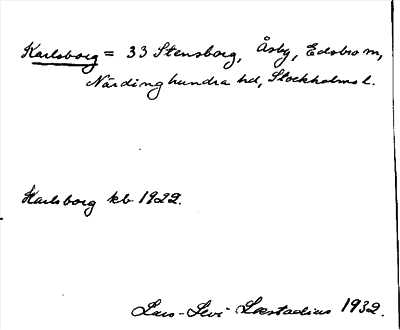 Karlsborg = 33 Stensborg, Åsby, Edsbro sn,
Närdinghundra hd, Stockholms l.
Karlsborg kb 1922.
Lars-Levi Læstadius 1932.